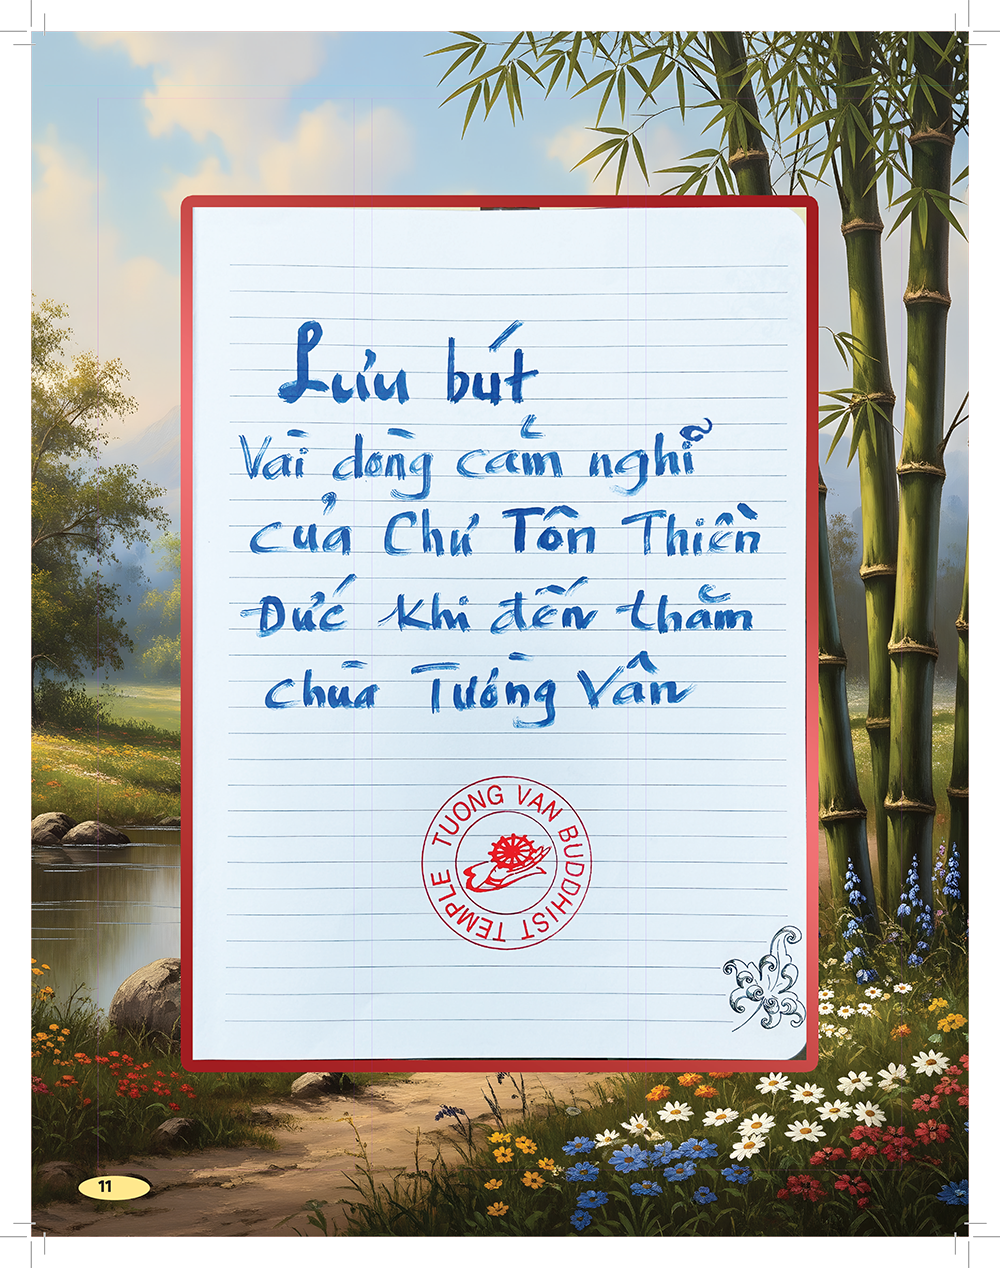 Lưu bút
Vài dòng cảm nghĩ
của Chư Tôn Thiền
Đức khi đến thăm
chùa Tường Vân
TUONG VAN BUDDHIST TEMPLE
11